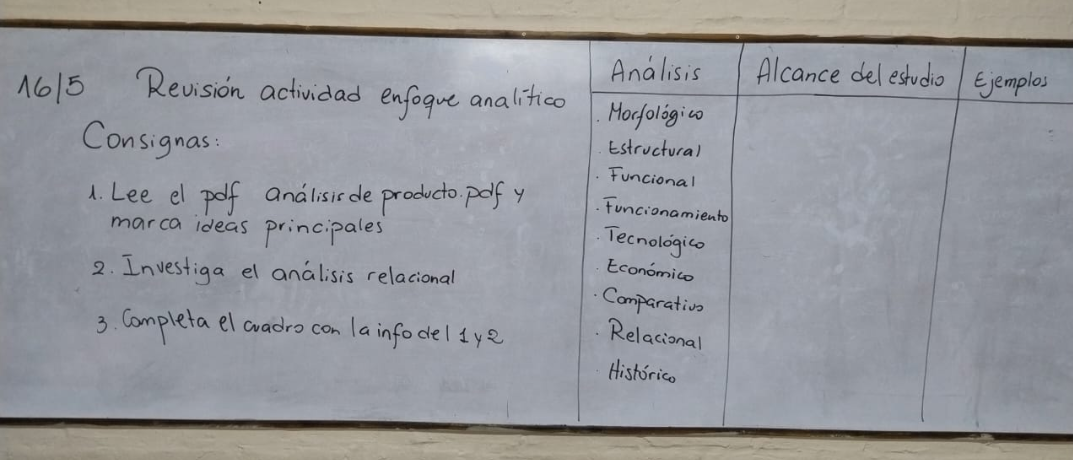 16/5 Revisión actividad enfoque analítico
Consignas:
1. Lee el pdf análisis de producto.pdf y
marca ideas principales
2. Investiga el análisis relacional
3. Completa el cuadro con la info del 1 y 2
Análisis Alcance del estudio Ejemplos
. Morfológico
. Estructural
. Funcional
. Funcionamiento
. Tecnológico
. Económico
. Comparativo
. Relacional
Histórico